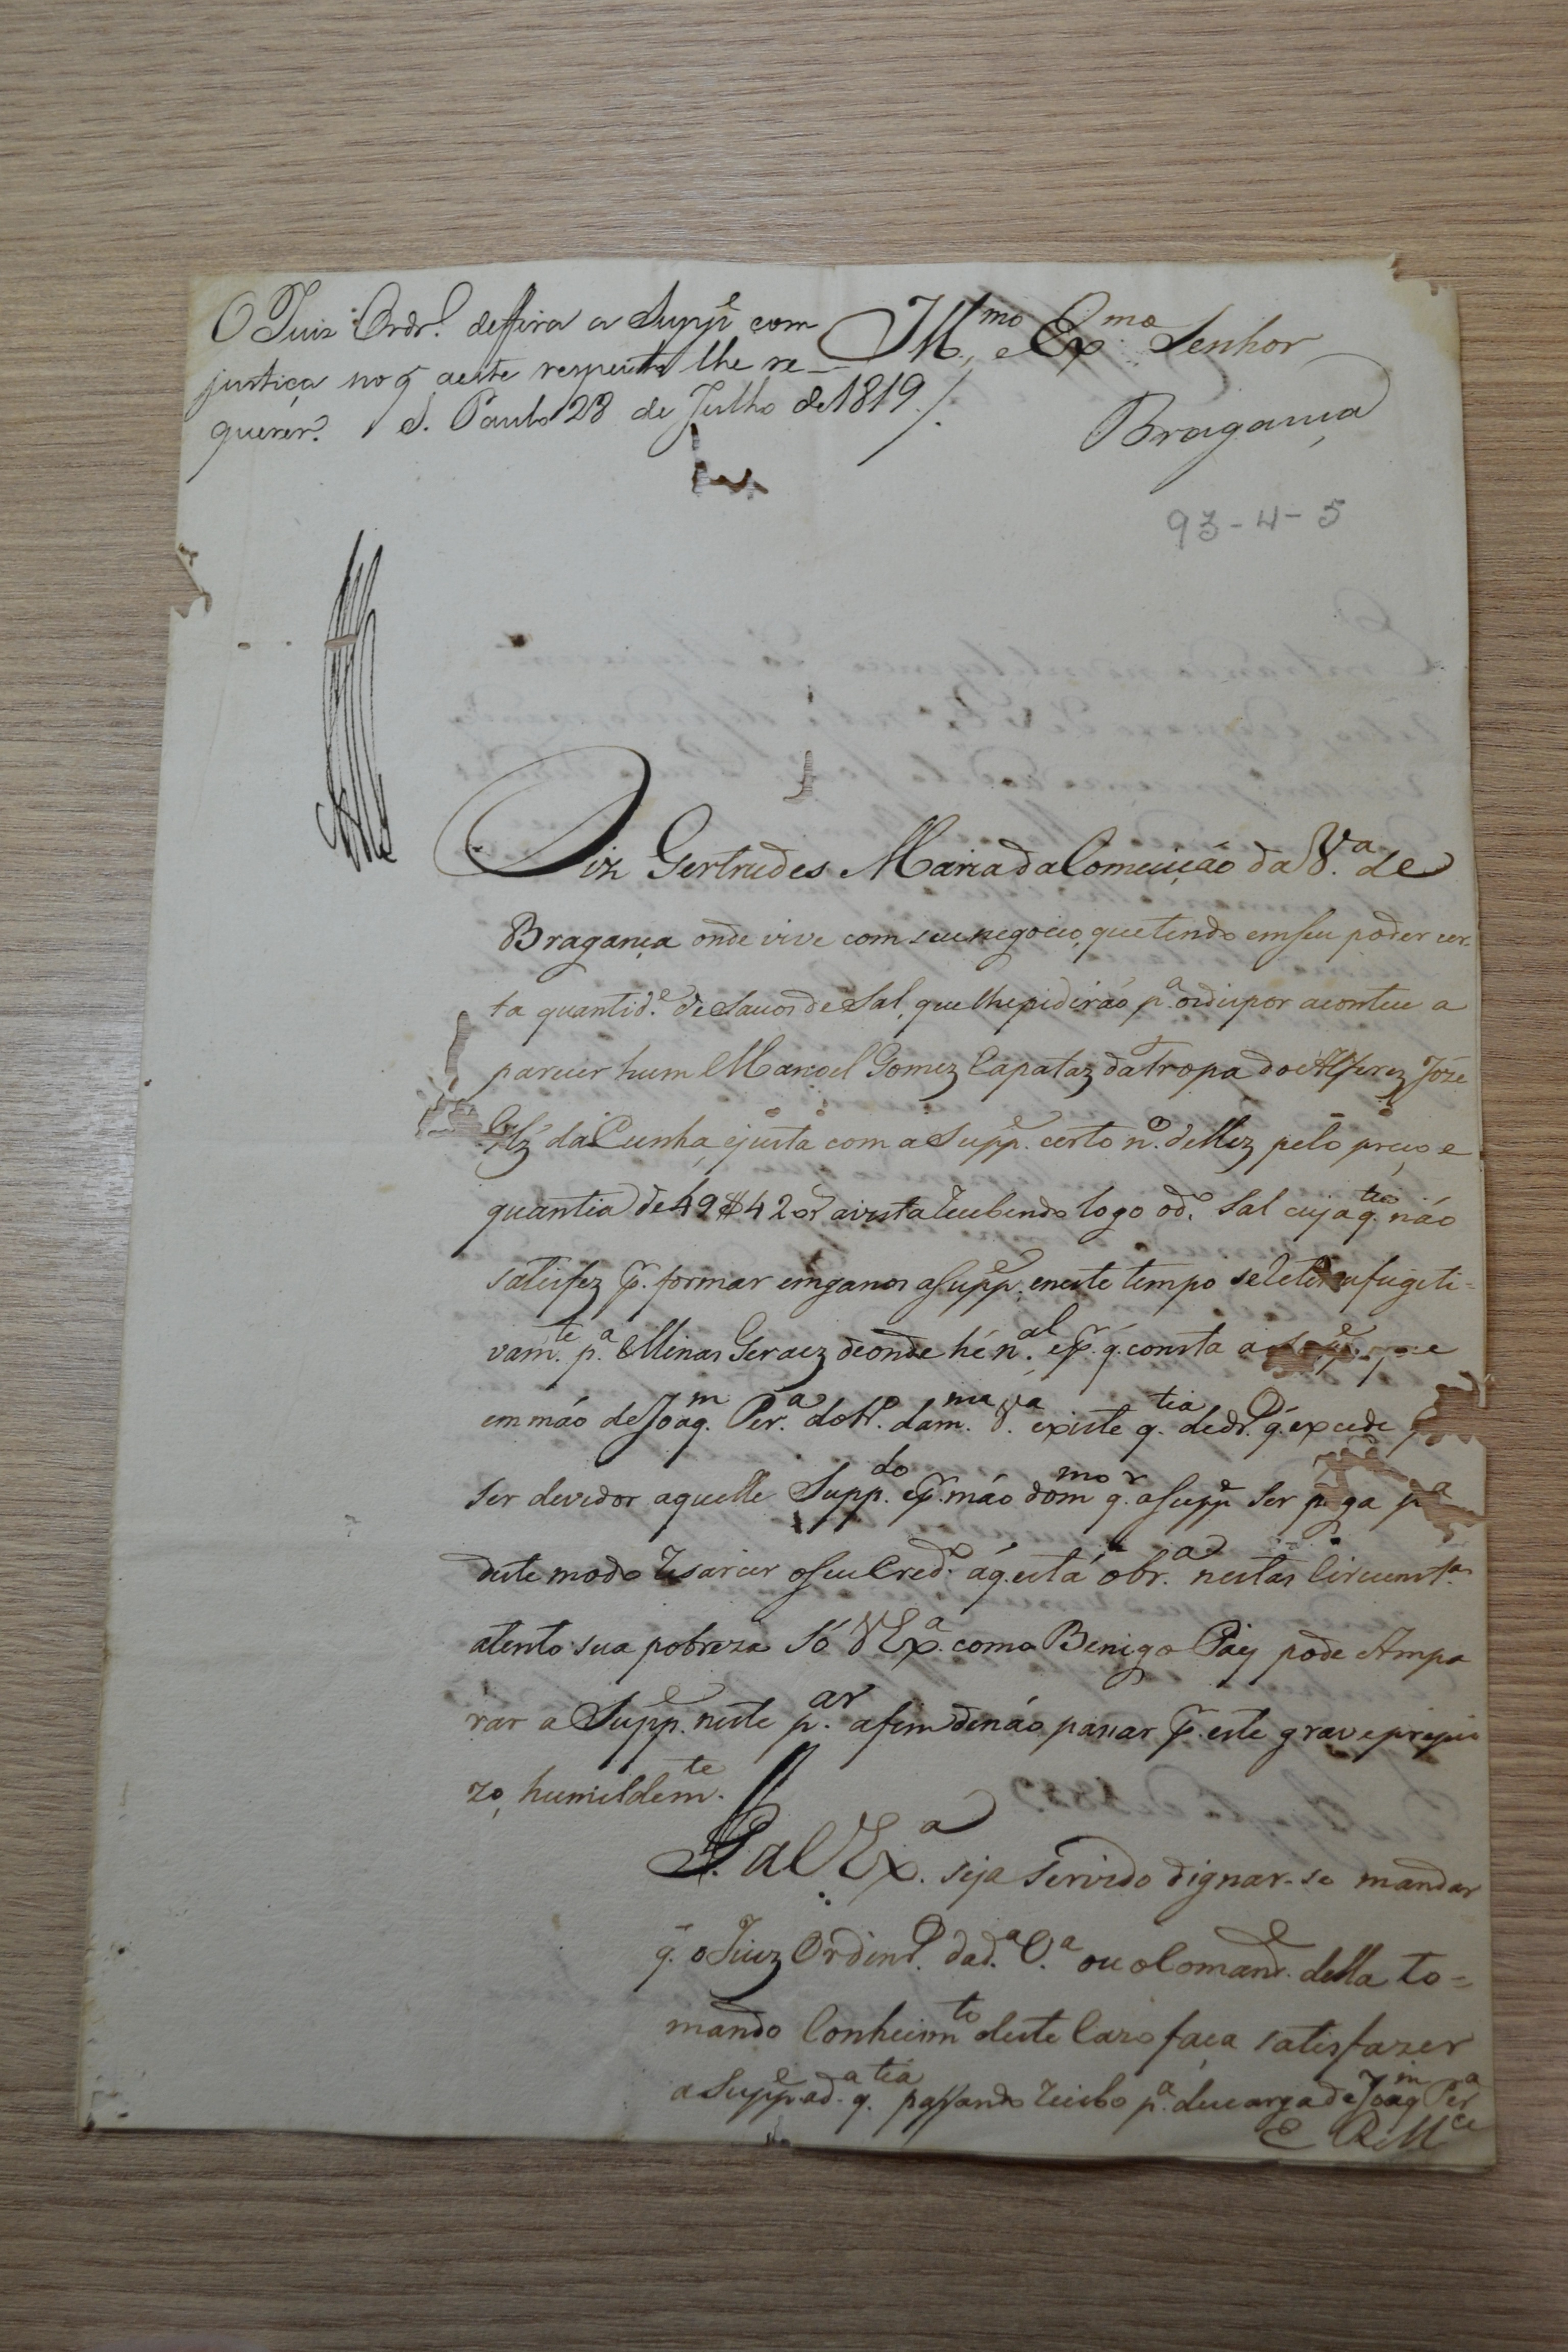 O Juis Ordr.º deffira a Suppe com
justiça no q̃ aeste respeito lhe re-
querer. S. Paulo 28 de Julho de 1819./.
Illmo. e Exmo. Senhor
Bragança
93-4-5
Diz Gertrudes Maria da Comceição da Va. de
Bragança onde vive com seu negocio, que tendo em seu poder cer-
ta quantide. de Sacos de Sal, que lhe pidirão pa. ordispor aconteu a
parecer hum Manoel Gomez Capataz da Tropa do Alferez Joze
Glz da Cunha, ejusta com a Suppe. certo no. delles pelo preço e
quantia de 49$420 rs avista Recebendo logo o do. Sal cuja qtia. não
satisfez pr. formar emganos a Suppe. eneste tempo se retirou fugiti-
vamte. pa. Minas Geraez deonde hé nal. epr. q. consta a Suppe. que
em mão de Joaqm. Pera. do Mo. da mma Va. existe qtia. de dro. q. excede
ser devidor aquelle Suppdo. epr. mão domo qr. a Suppe Ser paga pa
deste modo Resarcir o seu Credo. áq. está obra. nestas Circunstas.
atento sua pobreza Só VExa. como Benigo Pay pode Ampa
rar a Suppe. neste par. afim denáo passar pr. este grave prejui
zo, humildemte.
P. a VExa. seja Servido dignar-se mandar
q. o Juiz Ordinro. da da. Va. ou o Comande. della to-
mando Conhecimto deste Cazo faça satisfazer
a Suppe. a da. qtia. passando Recibo pa. descarga de Joaqm Pera
E R Mce